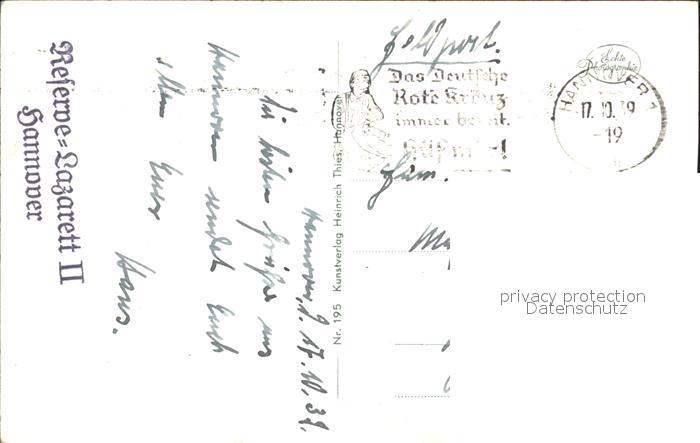 Reserve-Lazarett II
Hannover
Hannover, d. 17.10.39.
Die besten Grüße aus
Hannover sendet Euch
allen Euer
Hans.
Nr. 195 Kunstverlag Heinrich Thies, Hannover
Feldpost.
Das Deutsche
Rote Kreuz
immer bereit.
Hilf mit!
Echte
Photographie
HANNOVER 1
17.10.39
-19
Fam.
privacy protection
Datenschutz